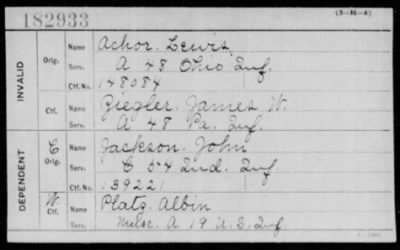 182933
(3-H-4)
INVALID
Orig.
Name Achor, Lewis,
Serv. A 48 Ohio Inf.
Ctf. No. 148084
Ctf.
Name Ziegler, James W.
Serv. A 48 Pa. Inf.
DEPENDENT
C Orig.
Name Jackson, John
Serv. C 54 Ind. Inf
Ctf. No. 139221
W. Ctf.
Name Platz, Albin
Serv. A 19 U.S. Inf